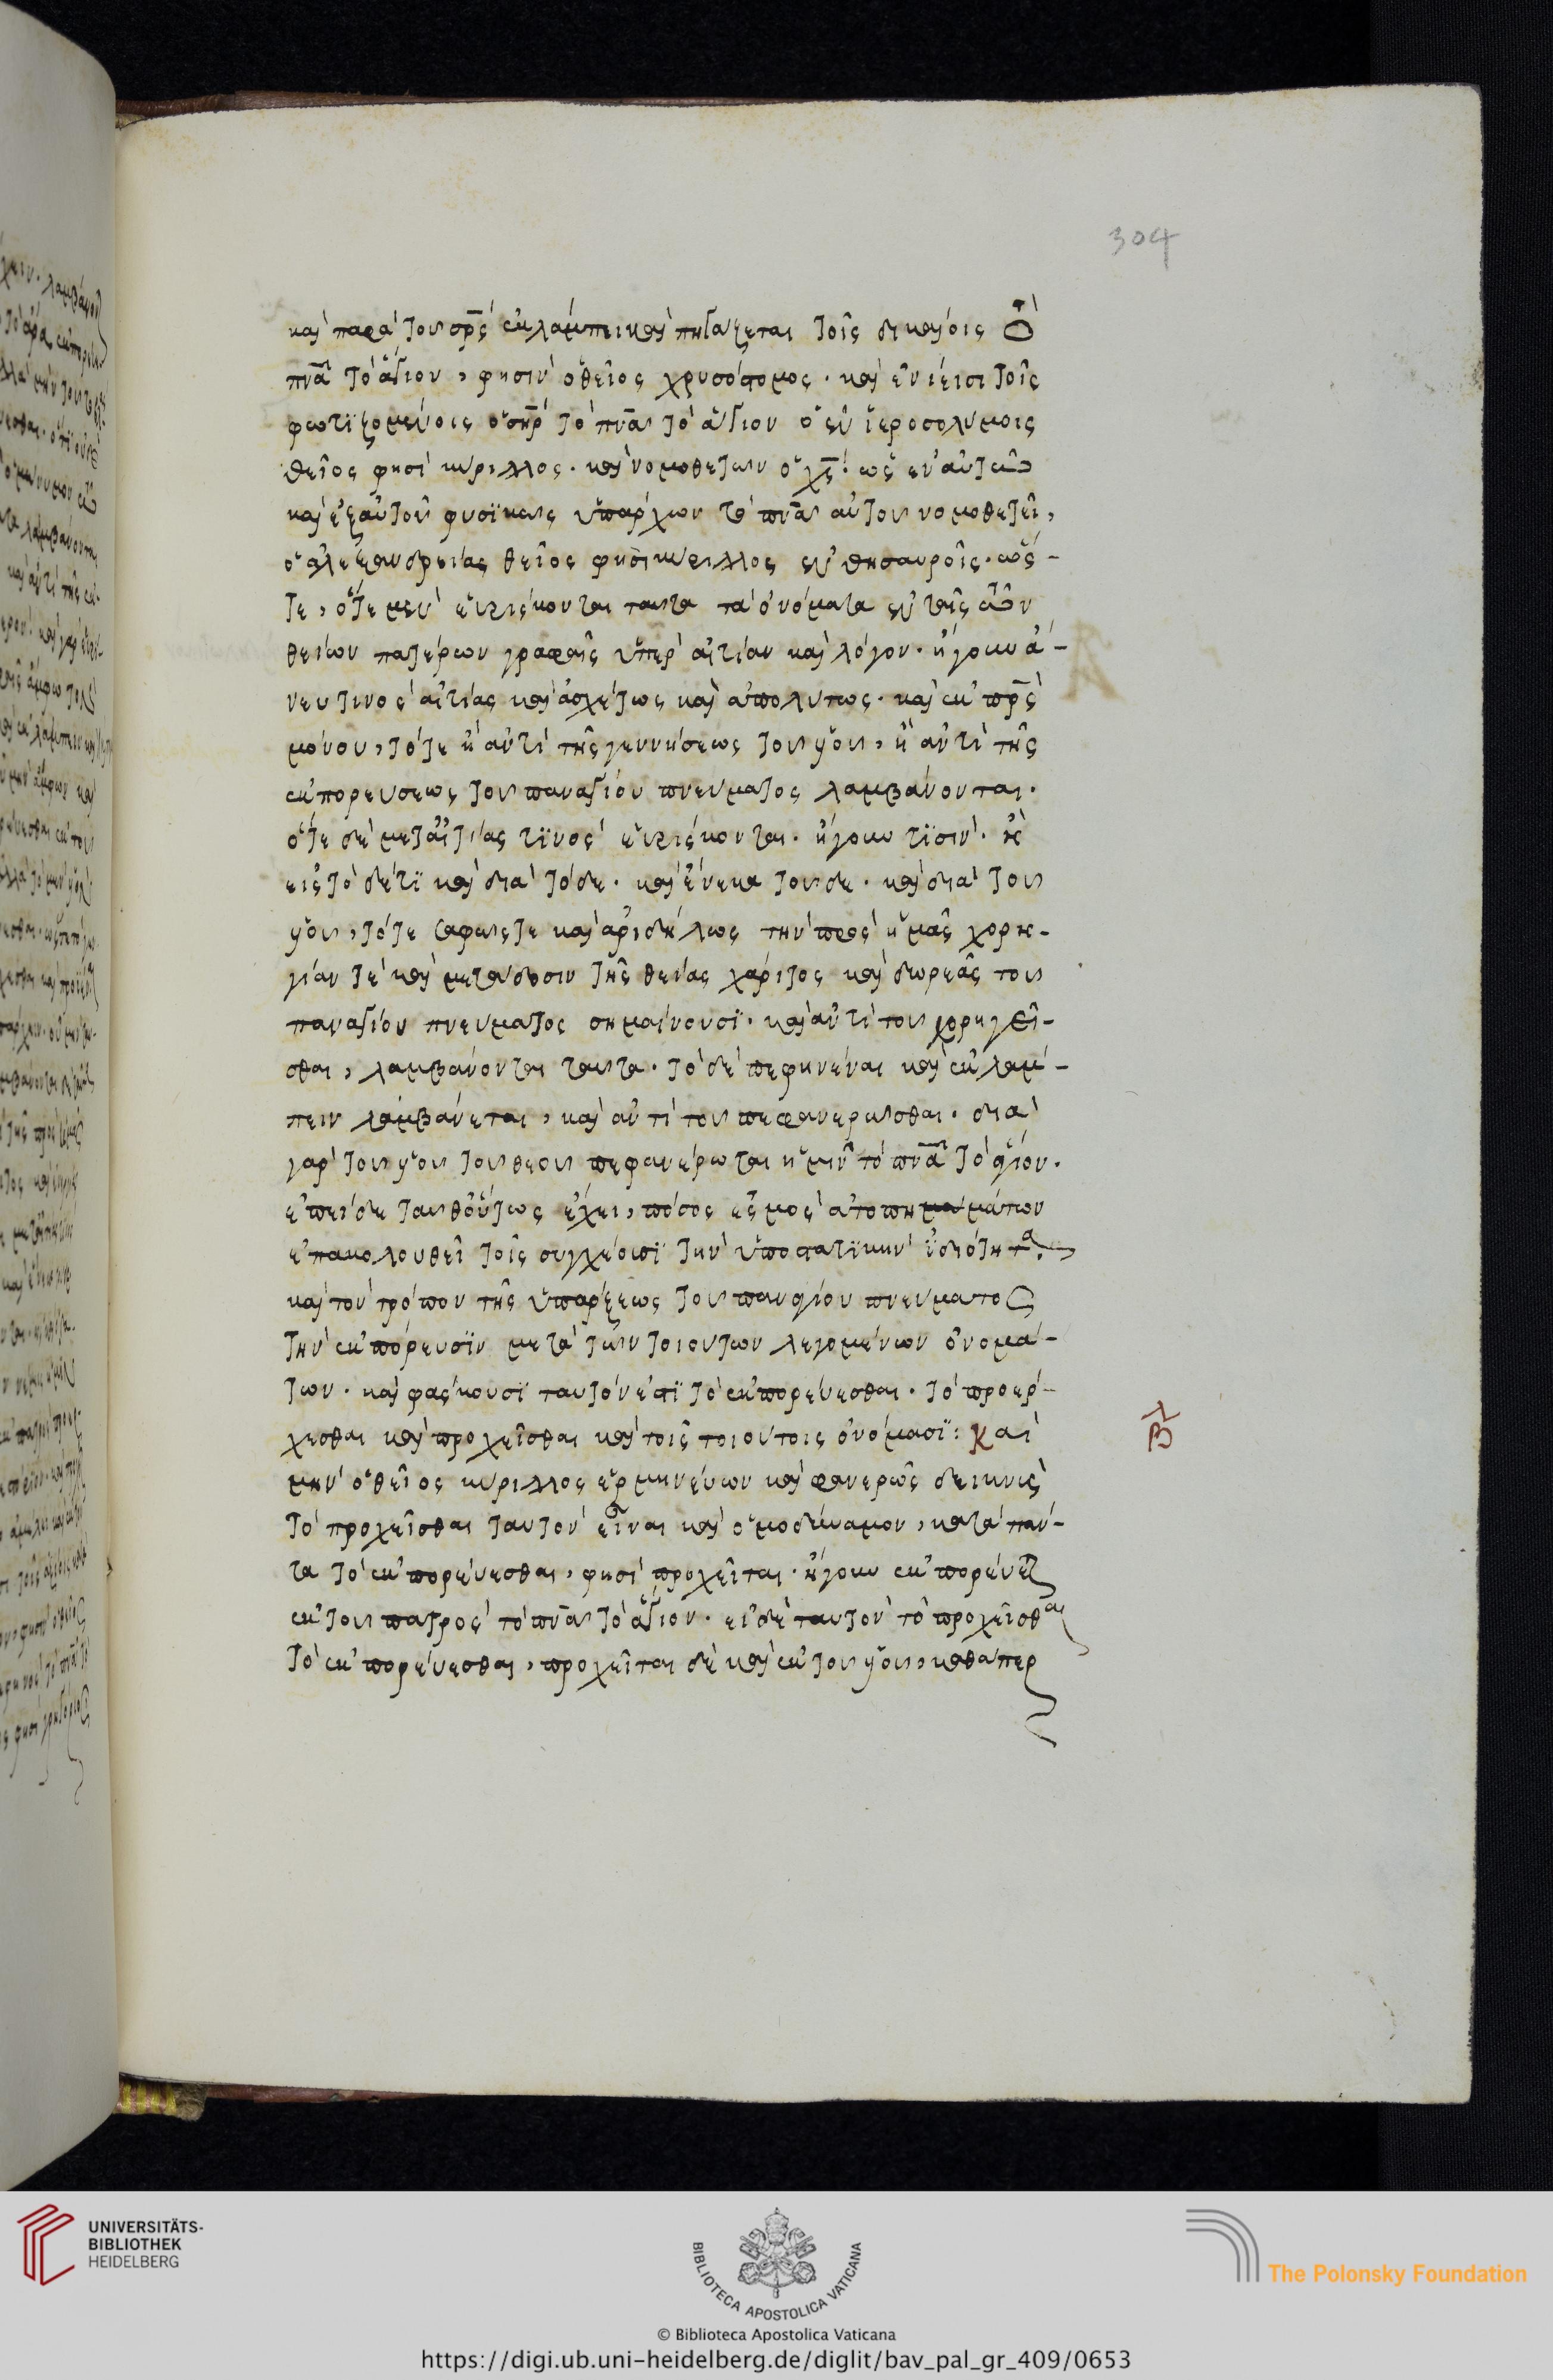 304
καὶ παρὰ τοῦ πρς ἐκλάμπει καὶ πηγάζεται τοῖς δικαίοις τὸ
πνᾶ τὸ ἅγιον, φησὶν ὁ θεῖος χρυσόστομος. καὶ ἐνίεισι τοῖς
φωτϊζομένοις ὁ σηρ τὸ πνᾶ τὸ ἅγιον ὁ ἐν ἱεροσολύμοις
θεῖος φησὶ κύριλλος. καὶ νομοθετῶν ὁ χς. ὡς ἐν αὐτῶ
καὶ ἐξ αὐτοῦ φυσϊκῶς ὑπάρχων τὸ πνᾶ αὐτοῦ νομοθετεῖ,
ὁ ἀλεξανδρείας θεῖος φησὶ κύριλλος ἐν θησαυροῖς. ὥς-
τε, ὅτε μὲν εὑρίσκονται ταῦτα τὰ ὀνόματα ἐν ταῖς τῶν
θείων πατέρων γραφαῖς ὑπὲρ αἰτίαν καὶ λόγον. ἤγουν ἄ-
νευ τινὸς αἰτίας καὶ ἀσχέτως καὶ ἀπολύτως. καὶ ἐκ πρς
μόνου, τότε ἢ ἀντὶ τῆς γεννήσεως τοῦ υἱοῦ, ἢ ἀντὶ τῆς
ἐκπορεύσεως τοῦ παναγίου πνεύματος λαμβάνονται.
ὅτε δὲ μετ' αἰτίας τϊνὸς εὑρίσκονται. ἤγουν τϊσὶν. ἢ
εἰς τὸ δέ τϊ καὶ διὰ τόδε. καὶ ἕνεκα τοῦδε. καὶ διὰ τοῦ
υἱοῦ, τότε σαφῶς τε καὶ ἀριδήλως τὴν πρὸς ἡμᾶς χορη-
γίαν τὲ καὶ μετάδοσιν τῆς θείας χάριτος καὶ δωρεᾶς τοῦ
παναγίου πνεύματος σημαίνουσϊ. καὶ ἀντὶ τοῦ χορηγεῖ-
σθαι, λαμβάνονται ταῦτα. τὸ δὲ πεφηνέναι καὶ ἐκλάμ-
πειν λαμβάνεται, καὶ ἀντὶ τοῦ πεφανερῶσθαι. διὰ
γὰρ τοῦ υἱοῦ τοῦ θεοῦ πεφανέρωται ἡμῖν τὸ πνᾶ τὸ ἅγιον.
ἐπεὶ δὲ ταῦθ' οὕτως ἔχει, πόσος ἑσμὸς ἀτοπημάτων
ἐπακολουθεῖ τοῖς συγχέουσϊ τὴν ὑποστατϊκὴν ϊδιότητα.
καὶ τὸν τρόπον τῆς ὑπάρξεως τοῦ παναγίου πνεύματος
τὴν ἐκπόρευσϊν μετὰ τῶν τοιούτων λεγομένων ὀνομά-
των. καὶ φάσκουσϊ ταυτόν ἐστϊ τὸ ἐκπορεύεσθαι. τὸ προέρ-
χεσθαι καὶ προχεῖσθαι καὶ τοῖς τοιούτοις ὀνόμασϊ: καὶ
μὴν ὁ θεῖος κύριλλος ἑρμηνεύων καὶ φανερῶς δεικνὺς
τὸ προχεῖσθαι ταυτὸν εἶναι καὶ ὁμοδύναμον, κατὰ πάν-
τα τὸ ἐκπορεύεσθαι, φησὶ προχεῖται. ἤγουν ἐκπορεύετ
ἐκ τοῦ πατρὸς τὸ πνᾶ τὸ ἅγιον. εἰ δὲ ταυτὸν τὸ προχεῖσθαι
τὸ ἐκπορεύεσθαι, προχεῖται δὲ καὶ ἐκ τοῦ υἱοῦ, καθάπερ
UNIVERSITÄTS-
BIBLIOTHEK
HEIDELBERG
BIBLIOTECA APOSTOLICA VATICANA
The Polonsky Foundation
© Biblioteca Apostolica Vaticana
https://digi.ub.uni-heidelberg.de/diglit/bav_pal_gr_409/0653